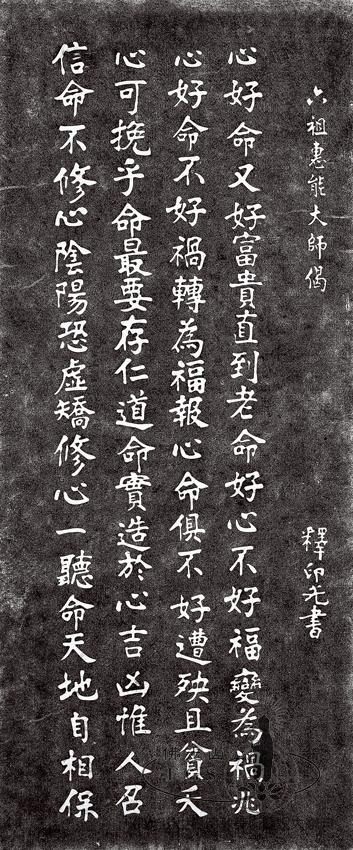 六祖惠能大師偈
釋印光書
心好命又好富貴直到老命好心不好福變為禍兆
心好命不好禍轉為福報心命俱不好遭殃且貧夭
心可挽乎命最要存仁道命實造於心吉凶惟人召
信命不修心陰陽恐虛矯修心一聽命天地自相保